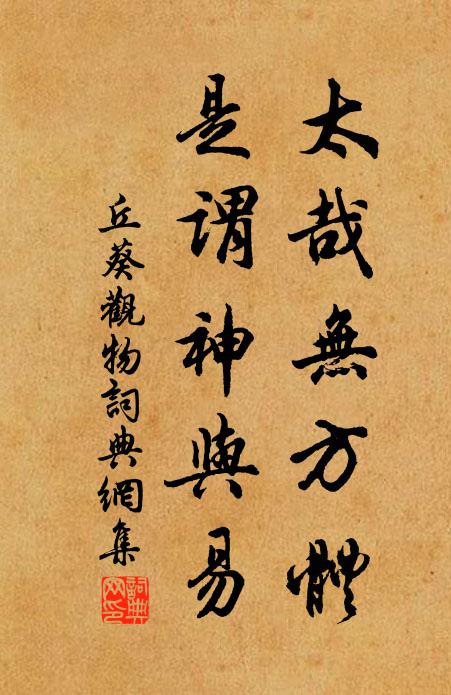 太哉無方體
是謂神與易
丘葵觀物詞典網集
詞典网印